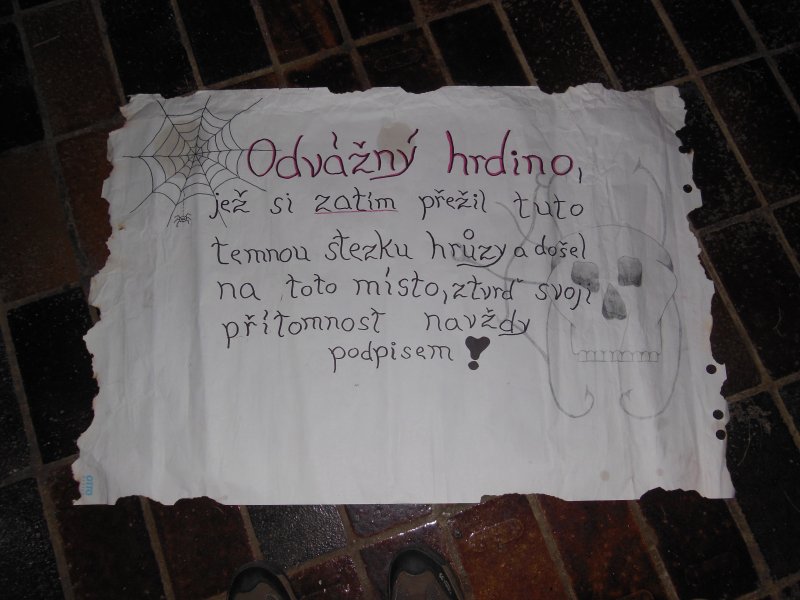 Odvážný hrdino,
jež si zatím přežil tuto
temnou stezku hrůzy a došel
na toto místo, ztvrď svoji
přítomnost navždy
podpisem!